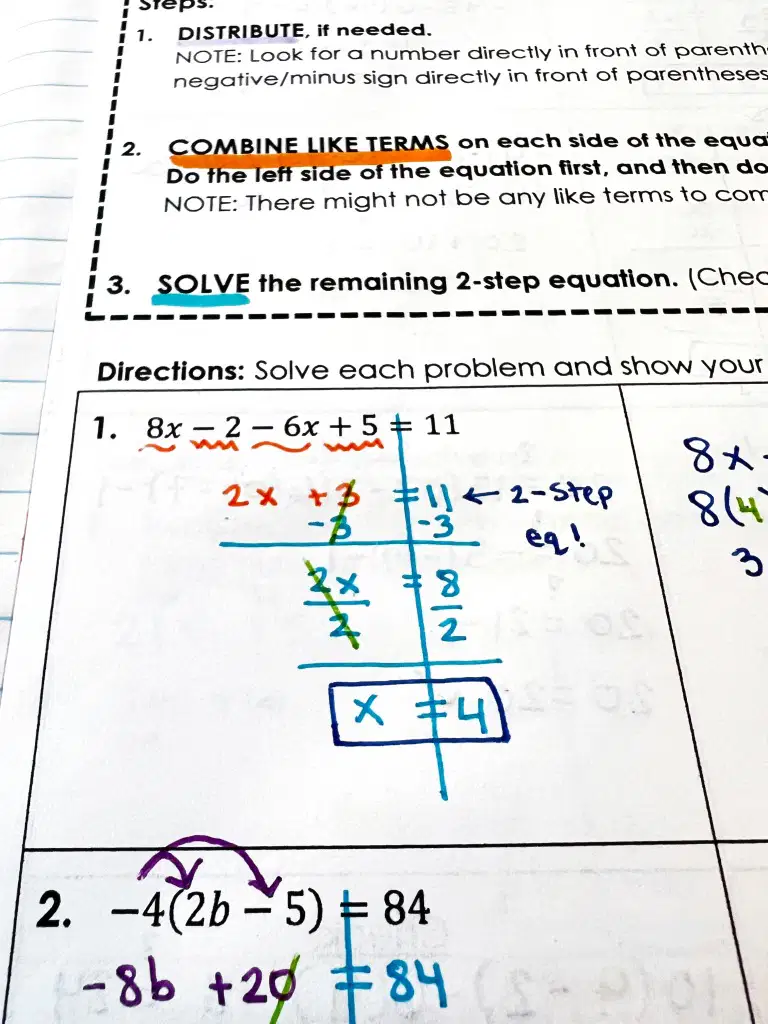 Steps:
1. DISTRIBUTE, if needed.
NOTE: Look for a number directly in front of
negative/minus sign directly in front of parentheses
2. COMBINE LIKE TERMS on each side of the
Do the left side of the equation first, and then do
NOTE: There might not be any like terms to
3. SOLVE the remaining 2-step equation.
Directions: Solve each problem and show your
1. 8x − 2 − 6x + 5 = 11
2x +3 =11 ← 2-step
-3 -3 eq!
2x = 8
2 2
x = 4
8x
8(4
3
2. −4(2b − 5) = 84
-8b +20 = 84